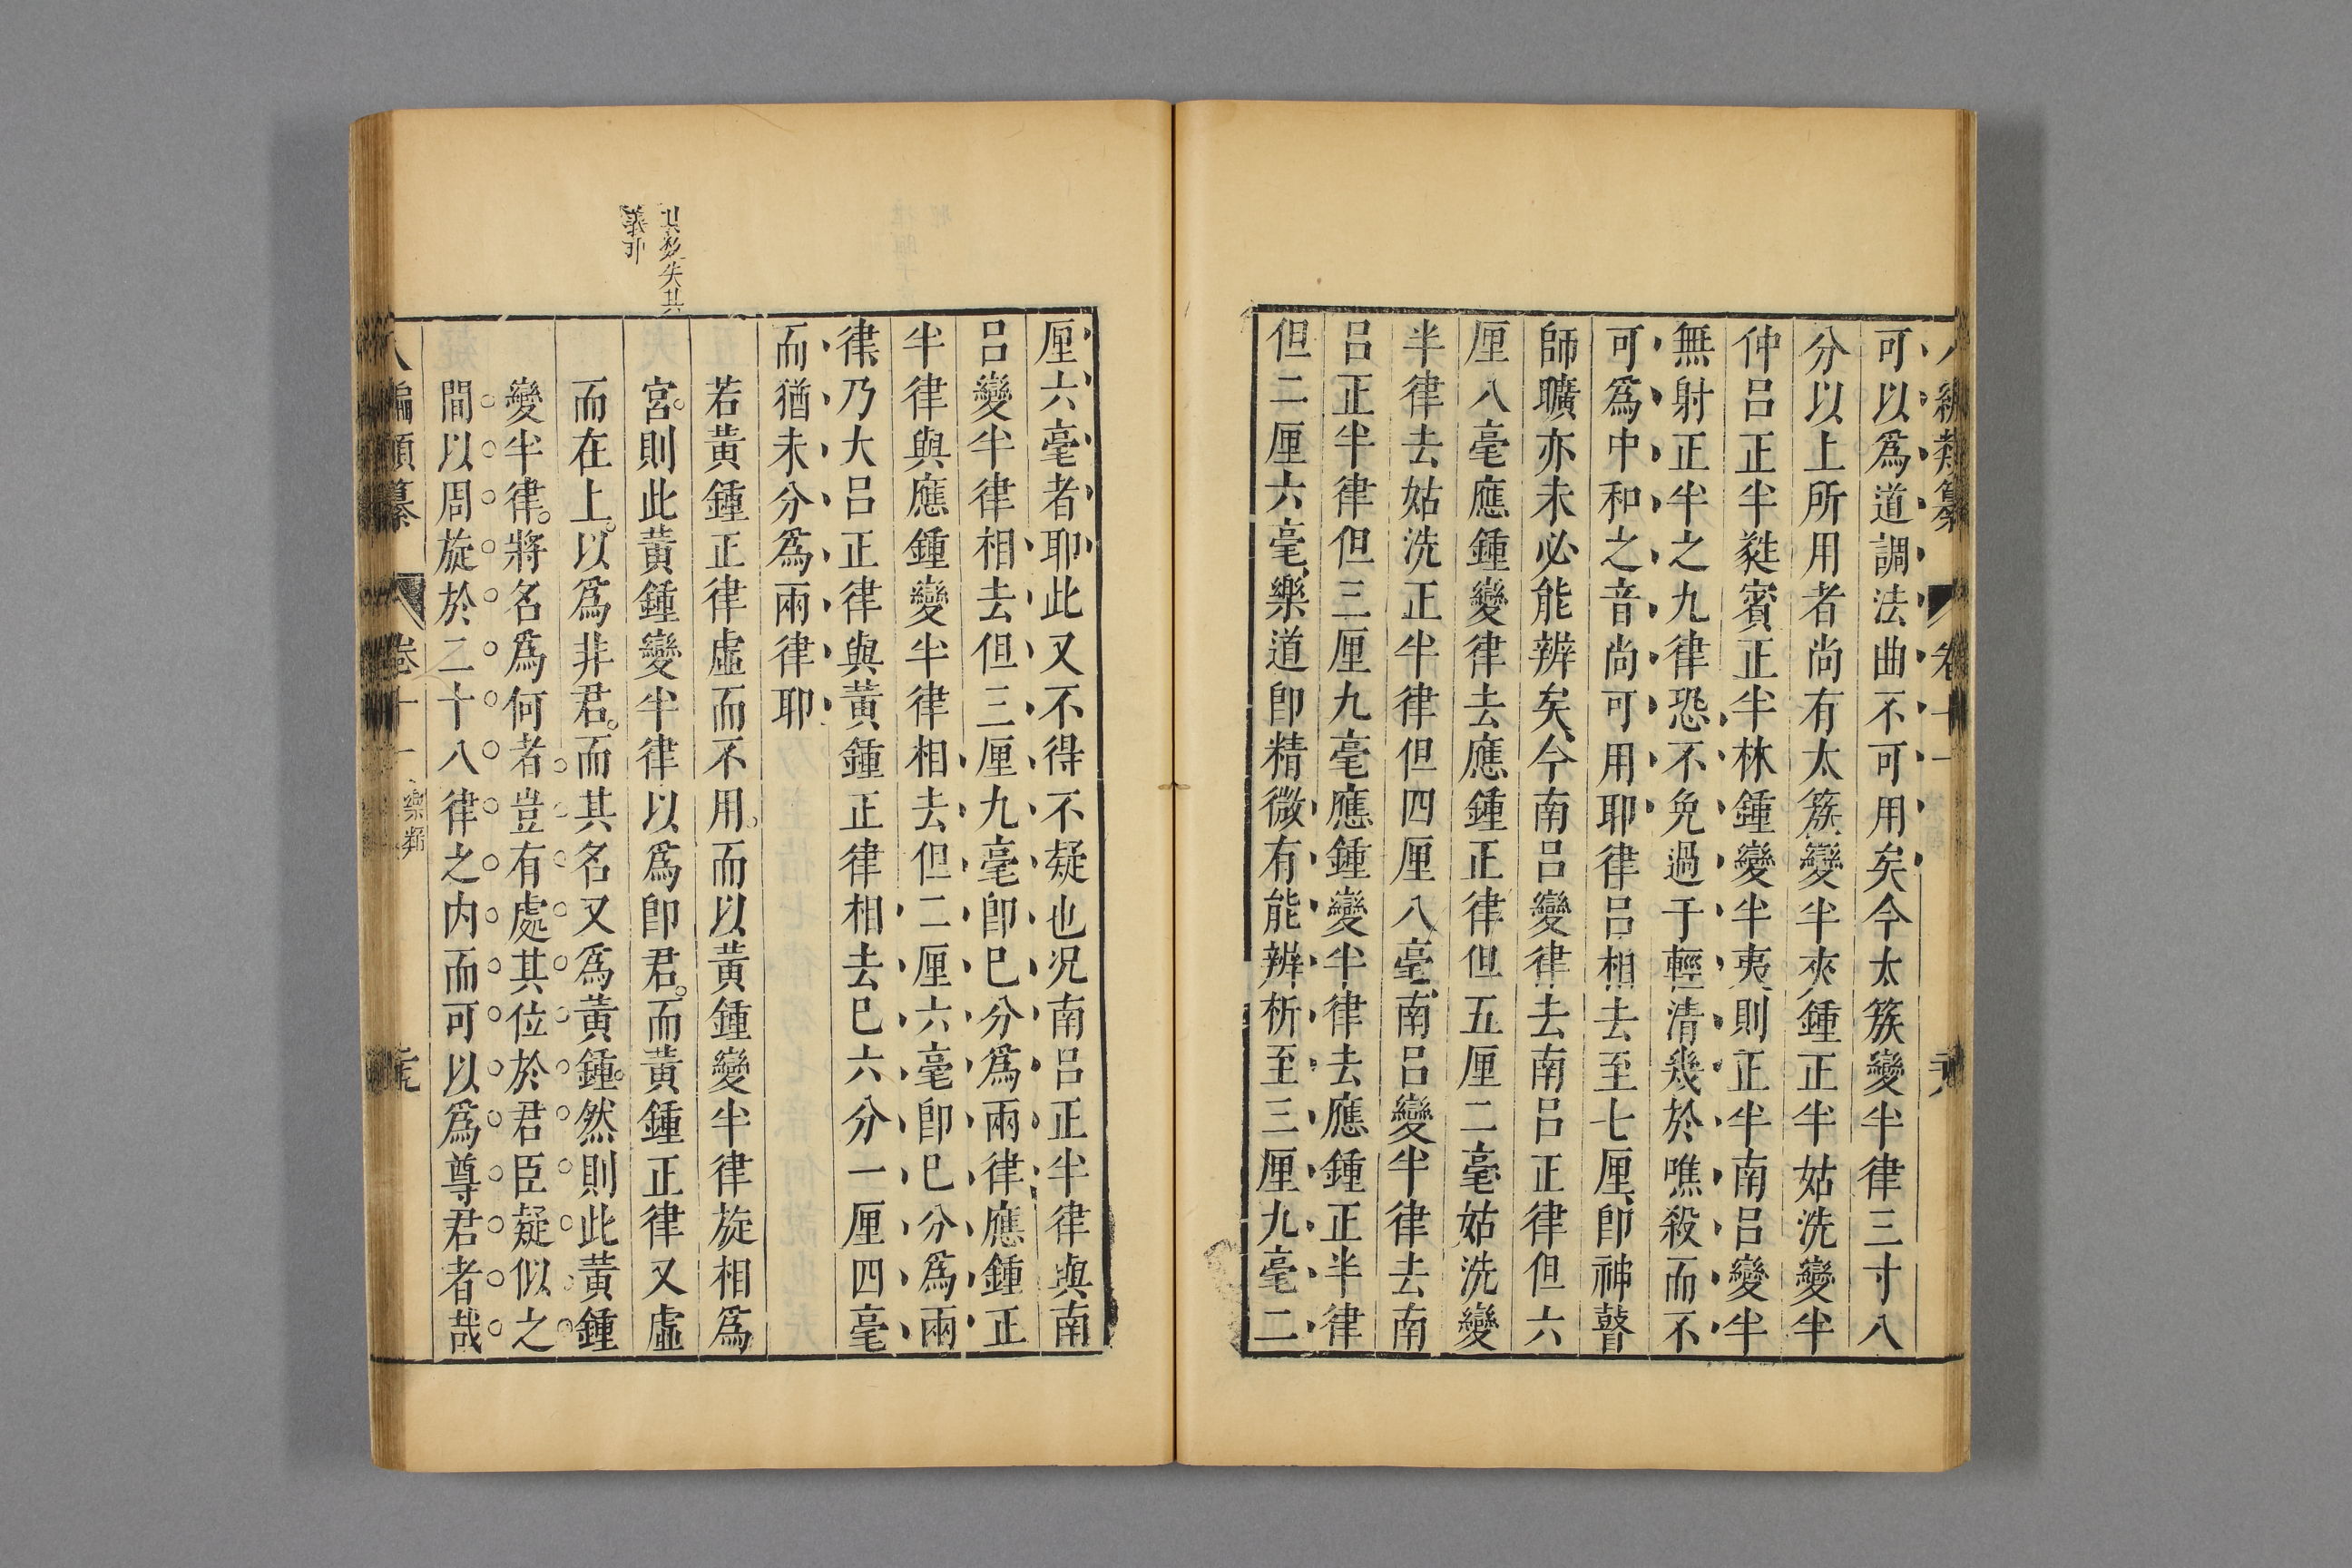 可以為道調法曲不可用矣今太簇變半律三寸八
分以上所用者尚有太簇變半夾鍾正半姑洗變半
仲呂正半蕤賓正半林鍾變半夷則正半南呂變半
無射正半之九律恐不免過于輕清幾於噍殺而不
可為中和之音尚可用耶律呂相去至七厘即神瞽
師曠亦未必能辨矣今南呂變律去南呂正律但六
厘八毫應鍾變律去應鍾正律但五厘二毫姑洗變
半律去姑洗正半律但四厘八毫南呂變半律去南
呂正半律但三厘九毫應鍾變半律去應鍾正半律
但二厘六毫樂道即精微有能辨析至三厘九毫二
厘六毫者耶此又不得不疑也况南呂正半律與南
呂變半律相去但三厘九毫即巳分為兩律應鍾正
半律與應鍾變半律相去但二厘六毫即巳分為兩
律乃大呂正律與黃鍾正律相去巳六分一厘四毫
而猶未分為兩律耶
若黃鍾正律虛而不用。而以黃鍾變半律旋相為
宮。則此黃鍾變半律以為即君。而黃鍾正律又虛
而在上。以為非君。而其名又為黃鍾。然則此黃鍾
變半律。將名為何者豈有處其位於君臣疑似之
間以周旋於二十八律之內而可以為尊君者哉
編類纂 卷十一 樂類